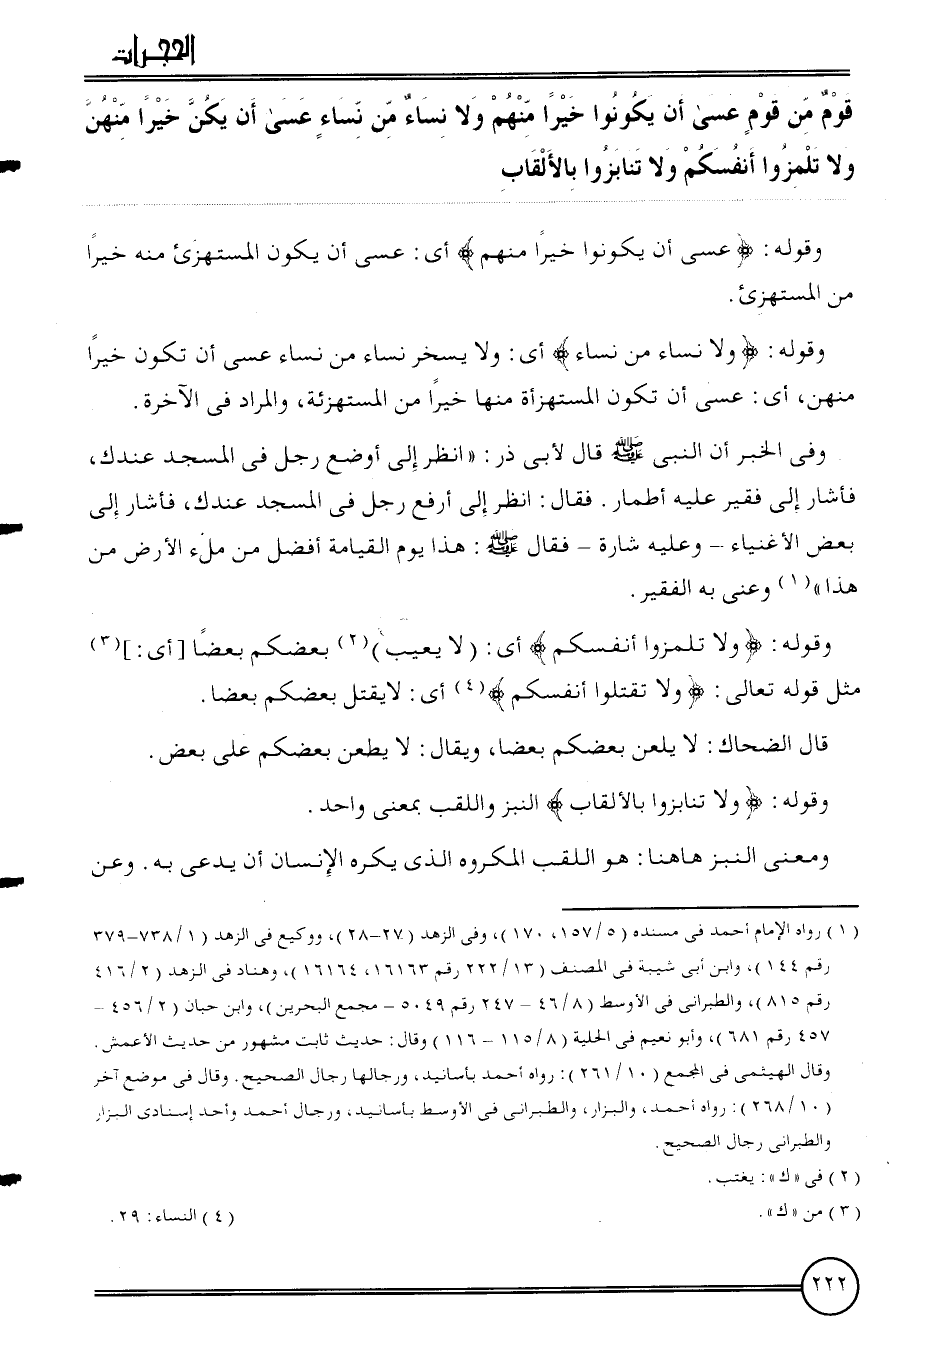 الحجرات
قَوْمٌ مِّن قَوْمٍ عَسَىٰ أَن يَكُونُوا خَيْرًا مِّنْهُمْ وَلا نِسَاءٌ مِّن نِّسَاءٍ عَسَىٰ أَن يَكُنَّ خَيْرًا مِّنْهُنَّ
وَلا تَلْمِزُوا أَنفُسَكُمْ وَلا تَنَابَزُوا بِالأَلْقَابِ
وقوله: ﴿عسى أن يكونوا خيرًا منهم﴾ أى: عسى أن يكون المستهزئ منه خيرًا
من المستهزئ.
وقوله: ﴿ولا نساء من نساء﴾ أى: ولا يسخر نساء من نساء عسى أن تكون خيرًا
منهن، أى: عسى أن تكون المستهزأة منها خيرًا من المستهزئة، والمراد فى الآخرة.
وفى الخبر أن النبى ﷺ قال لأبى ذر: «انظر إلى أوضع رجل فى المسجد عندك،
فأشار إلى فقير عليه أطمار. فقال: انظر إلى أرفع رجل فى المسجد عندك، فأشار إلى
بعض الأغنياء – وعليه شارة – فقال ﷺ: هذا يوم القيامة أفضل من ملء الأرض من
هذا»(١) وعنى به الفقير.
وقوله: ﴿ولا تلمزوا أنفسكم﴾ أى: (لا يعيب)(٢) بعضكم بعضًا [أى:](٣)
مثل قوله تعالى: ﴿ولا تقتلوا أنفسكم﴾(٤) أى: لايقتل بعضكم بعضا.
قال الضحاك: لا يلعن بعضكم بعضا، ويقال: لا يطعن بعضكم على بعض.
وقوله: ﴿ولا تنابزوا بالألقاب﴾ النبز واللقب بمعنى واحد.
ومعنى النبز هاهنا: هو اللقب المكروه الذى يكره الإنسان أن يدعى به. وعن
(١) رواه الإمام أحمد فى مسنده (٥/١٥٧، ١٧٠)، وفى الزهد (٢٧–٢٨)، ووكيع فى الزهد (١/٧٣٨–٣٧٩
رقم ١٤٤)، وابن أبى شيبة فى المصنف (١٣/٢٢٢ رقم ١٦١٦٣، ١٦١٦٤)، وهناد فى الزهد (٢/٤١٦
رقم ٨١٥)، والطبرانى فى الأوسط (٨/٤٦ – ٢٤٧ رقم ٥٠٤٩ – مجمع البحرين)، وابن حبان (٢/٤٥٦ –
٤٥٧ رقم ٦٨١)، وأبو نعيم فى الحلية (٨/١١٥ – ١١٦) وقال: حديث ثابت مشهور من حديث الأعمش.
وقال الهيثمى فى المجمع (١٠/٢٦١): رواه أحمد بأسانيد، ورجالها رجال الصحيح. وقال فى موضع آخر
(١٠/٢٦٨): رواه أحمد، والبزار، والطبرانى فى الأوسط بأسانيد، ورجال أحمد وأحد إسنادى البزار
والطبرانى رجال الصحيح.
(٢) فى «ك»: يغتب.
(٣) من «ك». (٤) النساء: ٢٩.
٢٢٢